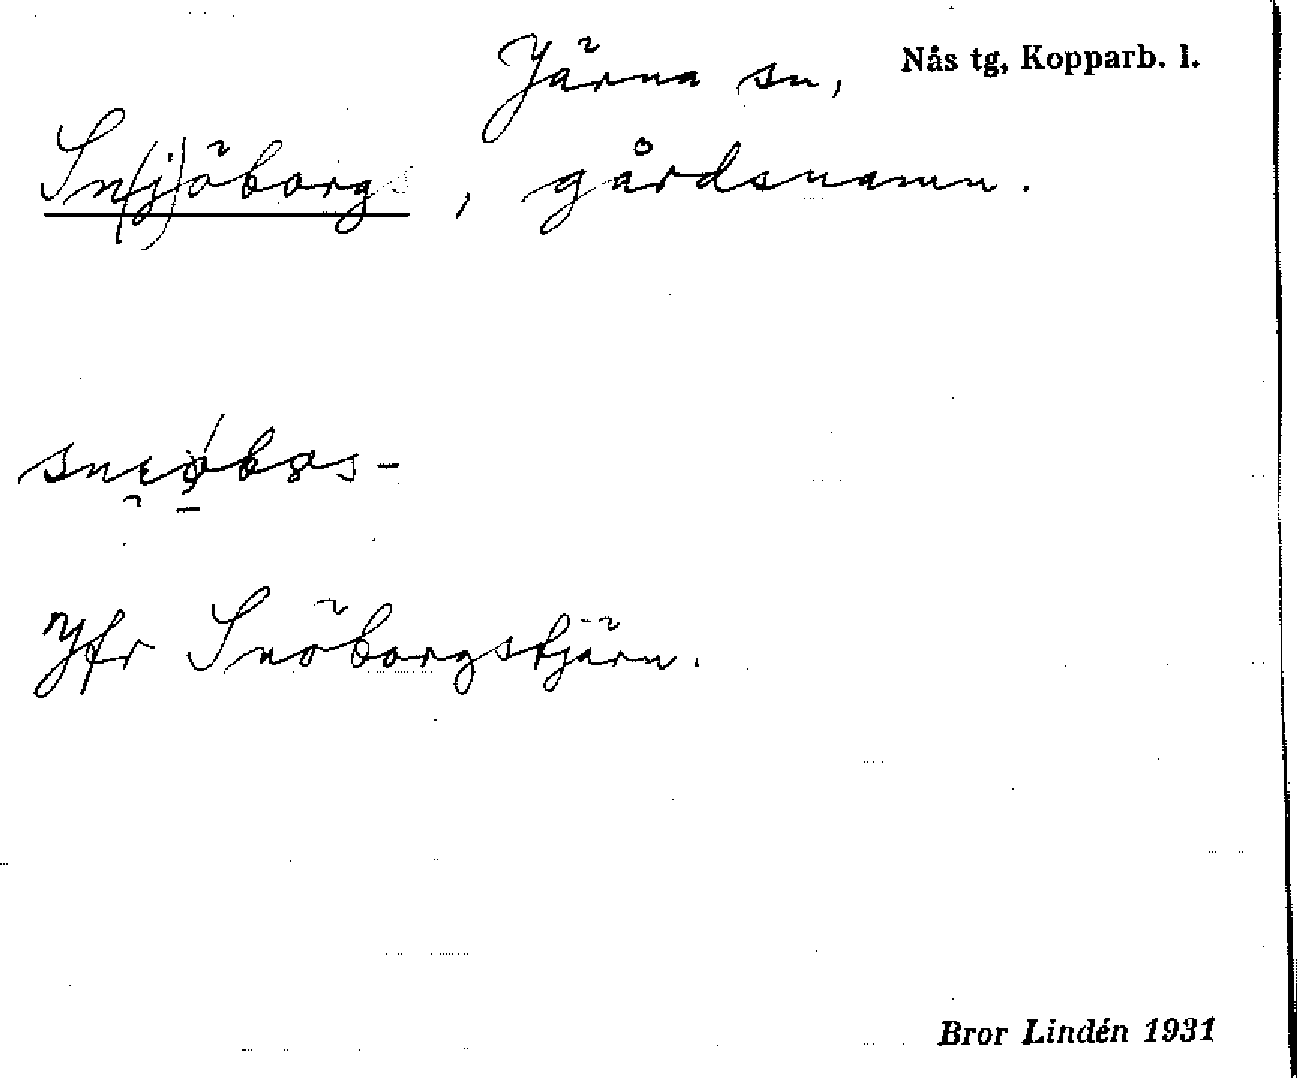 Järna sn, Nås tg, Kopparb. l.
Sn(j)öborgs, gårdsnamn.
Jfr Snöborgstjärn.
Bror Lindén 1931